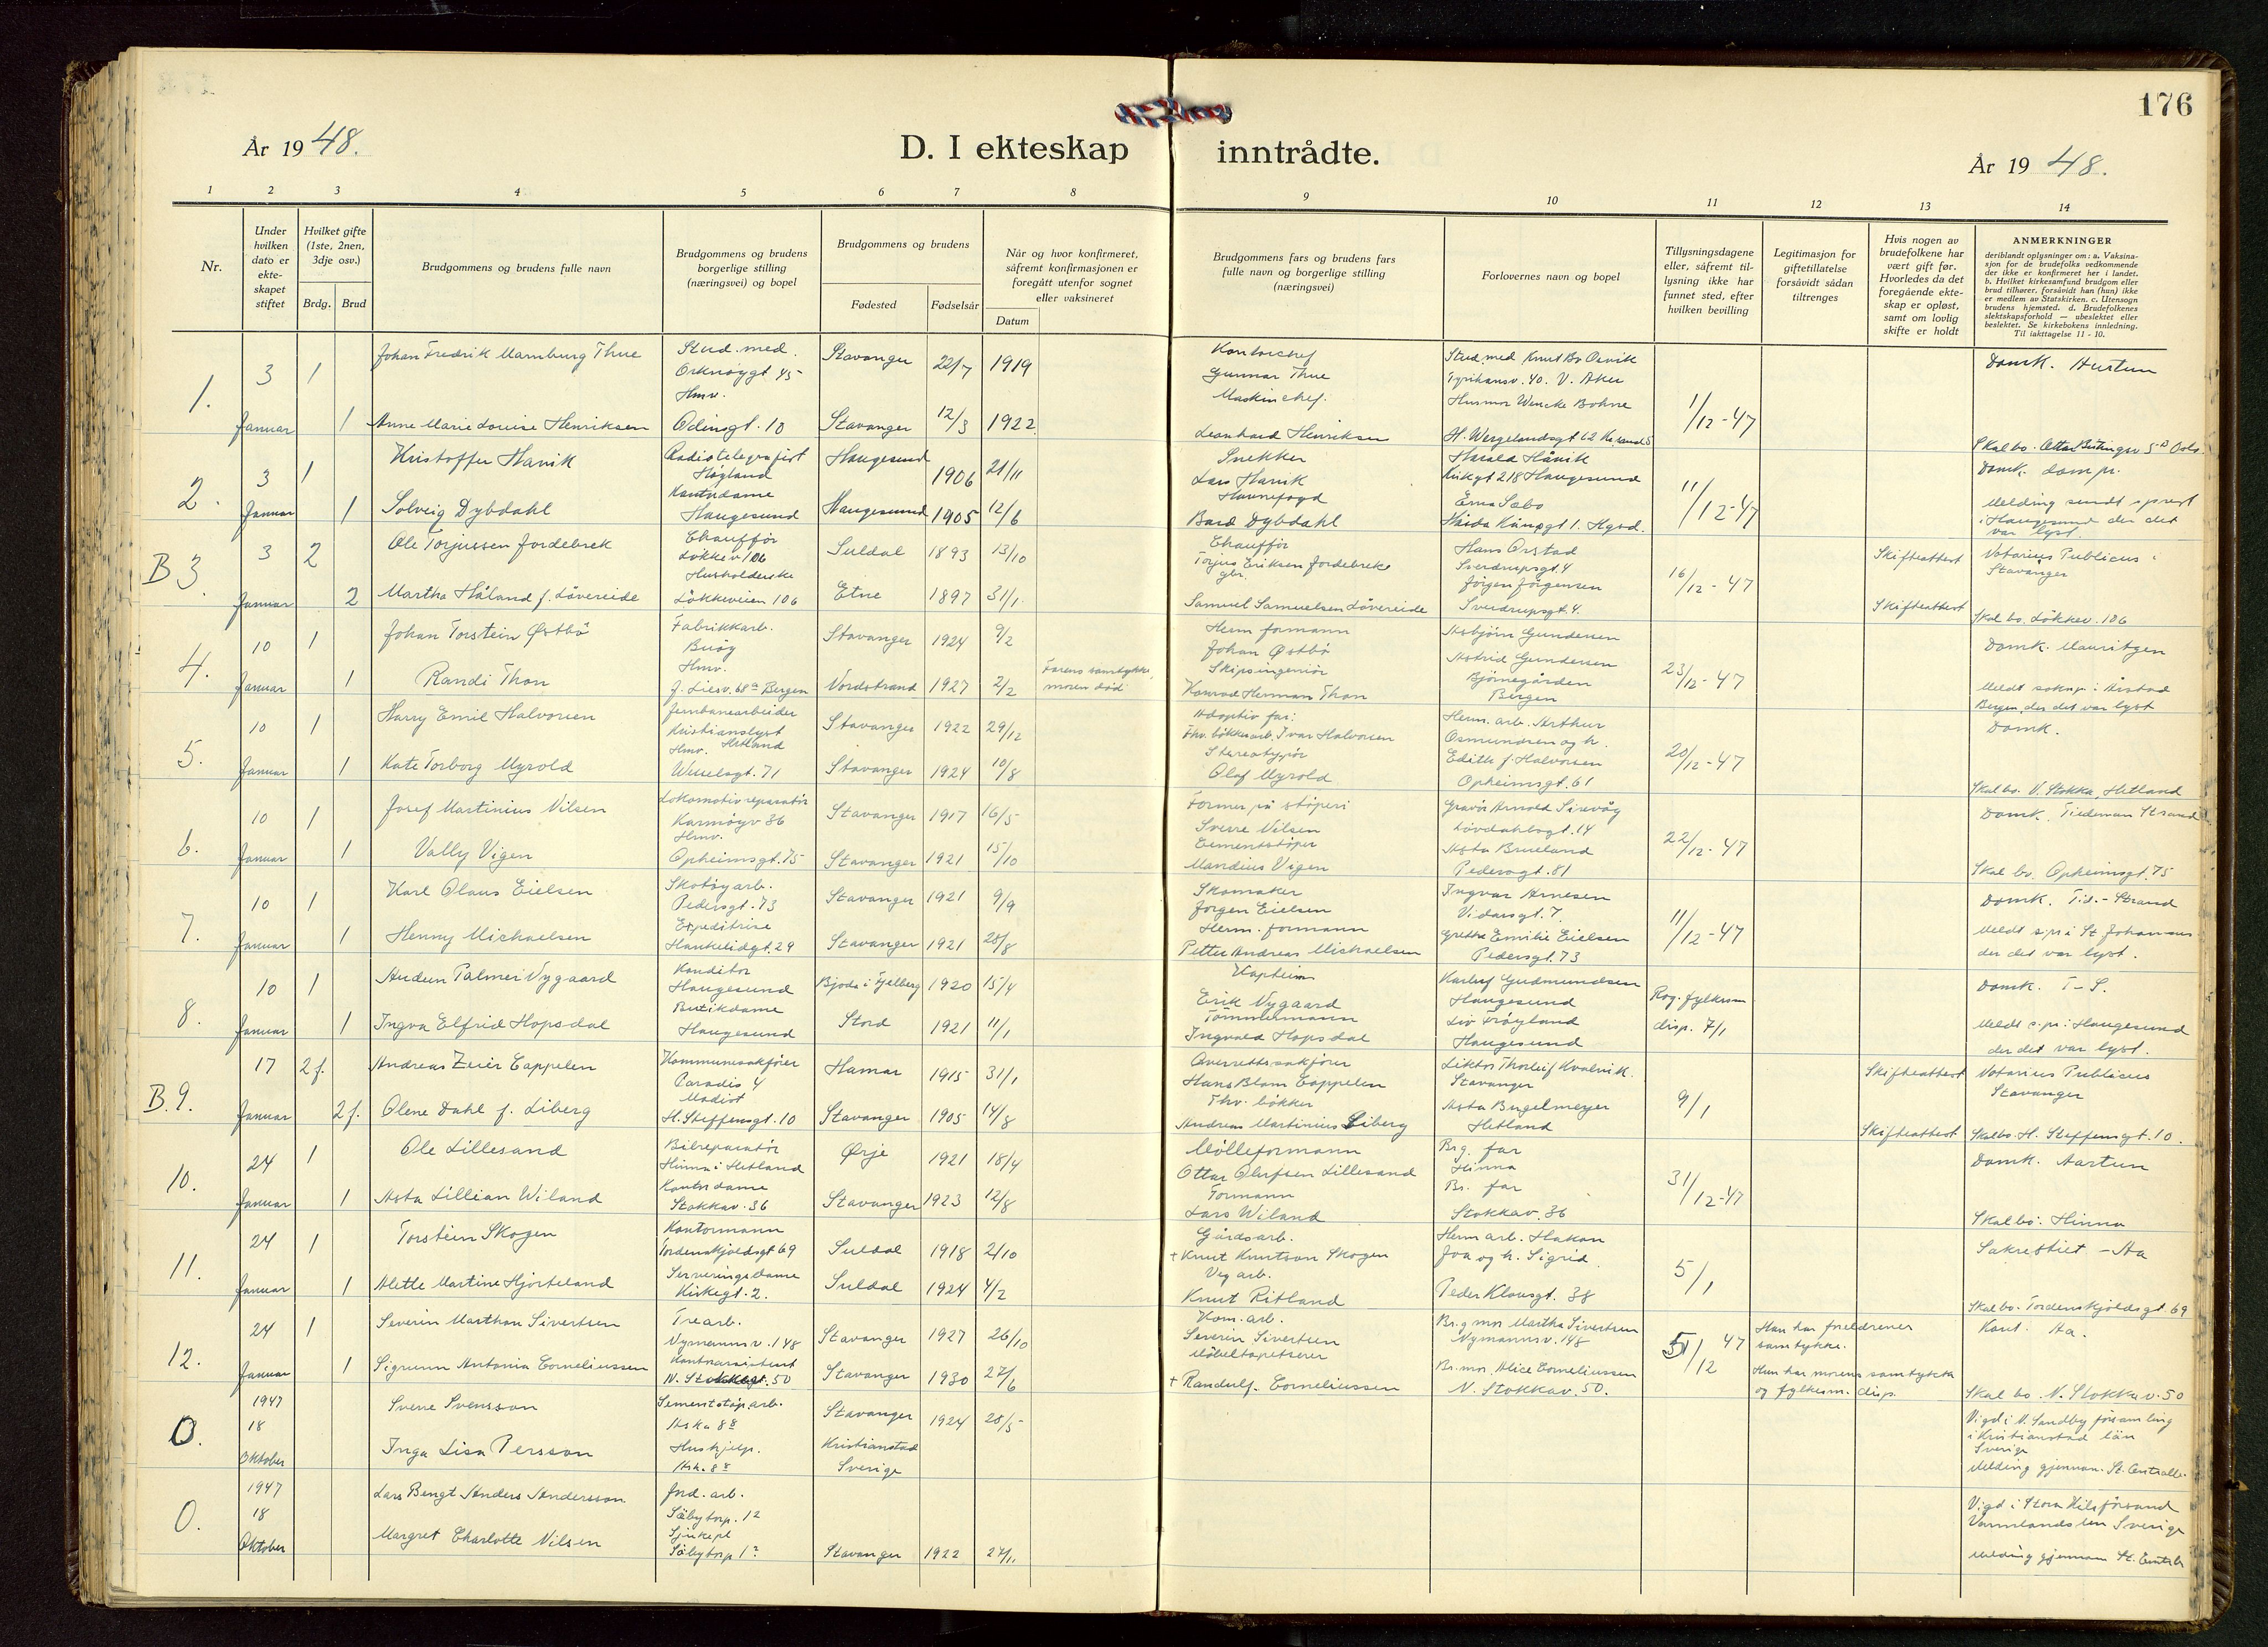 176
År 1948.
D. I ekteskap inntrådte.
År 1948.
1 2 3 4 5 6 7 8 9 10 11 12 13 14
Nr.
Under hvilken dato er ekte-skapet stiftet
Hvilket gifte (1ste, 2nen, 3dje osv.)
Brdg. Brud
Brudgommens og brudens fulle navn
Brudgommens og brudens borgerlige stilling (næringsvei) og bopel
Brudgommens og brudens
Fødested Fødselsår
Datum
Når og hvor konfirmeret, såfremt konfirmasjonen er foregått utenfor sognet eller vaksineret
Brudgommens fars og brudens fars fulle navn og borgerlige stilling (næringsvei)
Forlovernes navn og bopel
Tillysningsdagene eller, såfremt til-lysning ikke har funnet sted, efter hvilken bevilling
Legitimasjon for giftetillatelse forsåvidt sådan tiltrenges
Hvis nogen av brudefolkene har vært gift før. Hvorledes da det foregående ekte-skap er opløst, samt om lovlig skifte er holdt
ANMERKNINGER
deriblandt oplysninger om: a. Vaksina-sjon for de brudefolks vedkommende der ikke er konfirmeret her i landet. b. Hvilket kirkesamfund brudgom eller brud tilhører, forsåvidt han (hun) ikke er medlem av Statskirken. c. Utensogn brudens hjemsted. d. Brudefolkenes slektskapsforhold — ubeslektet eller beslektet. Se kirkebokens innledning. Til iakttagelse 11 - 10.
1. 3 Januar 1
Johan Fredrik Mamburg Thue Stud. med. Orknøygt 45 Stavanger 22/7 1919
Kontorchef Gunnar Thue Stud. med Knut Bo Osvik Tyrihansv. 40. V. Aker 11/12-47 Domk. Austun
1 Anne Marie Louise Henriksen Hmv. Odinsgt. 10 Stavanger 12/3 1922
Maskinchef. Leonhard Henriksen Husmor Wencke Bohne H. Wergelandsgt 62 Kr.sand S
2. 3 Januar 1
Kristoffer Havik Radiotelegrafist Høgland Haugesund 1906 21/11
Snekker Lars Havik Harald Håvik Kirkgt 218 Haugesund 11/12-47 Domk. dompr.
1 Solveig Dybdahl Kontordame Haugesund Haugesund 1905 12/6
Havnefogd Bård Dybdahl Erna Sæbø Haugesund
Melding sendt s.prest i Haugesund der det var lyst.
B 3. 3 Januar 2
Ole Torjussen Jordebrek Chauffør Løkkev 106 Suldal 1893 13/10
Chauffør Torjus Eriksen Jordebrekk gbr. Hans Orstad Sverdrupsgt. 4 16/12-47 Skifteattest Notarius Publicus i Stavanger
2 Martha Håland f. Løvereide Husholderske Løkkeveien 106 Etne 1897 31/1
Samuel Samuelsen Løvereide Jørgen Jørgensen Sverdrupsgt. 4. Skifteattest Skal bo. Løkkev. 106
4. 10 Januar 1
Johan Torstein Østbø Fabrikkarb. Buøy Stavanger 1924 9/2
Herm formann Johan Østbø Asbjørn Gundersen 23/12-47 Domk. Mauritzen
1 Randi Thon Hmv. J. Liesv. 68a Bergen Nordstrand 1927 2/2 Farens samtykke, moren død
Skipsingeniør Konrad Herman Thon Astrid Gundersen Bjørnegården Bergen
Meldt sokn.pr. i Årstad Bergen, der det var lyst
5. 10 Januar 1
Harry Emil Halvorsen Jernbanearbeider Kristianslyst Hetland Stavanger 1922 29/12
Adoptiv far: Fhv. bøkkerarb. Ivar Halvorsen Herm. arb. Arthur Osmundsen og h. 20/12-47 Domk.
1 Kate Torborg Myrold Hmv. Wesselsgt. 71 Stavanger 1924 10/8
Stereotypør Olaf Myrold Edith f. Halvorsen Opheimsgt. 61 Skal bo. V. Stokka, Hetland
6. 10 Januar 1
Josef Martinius Nilsen Lokomotivreparatør Karmøygt 36 Stavanger 1917 16/5
Former på støperi Sverre Nilsen Gravør Arnold Sirevåg Løvdahlsgt. 14 22/12-47 Domk. Tiedeman Strand
1 Vally Vigen Hmv. Opheimsgt. 75 Stavanger 1921 15/10
Cementstøper Mandius Vigen Asta Brueland Pedersgt. 81 Skal bo. Opheimsgt. 75
7. 10 Januar 1
Karl Olaus Eielsen Skotøyarb. Pedersgt. 73 Stavanger 1921 9/9
Skomaker Jørgen Eielsen Ingvar Arnesen Vidarsgt. 7. 11/12-47 Domk. Tid.- Strand
1 Henny Michaelsen Expeditrise Haukelidgt. 29 Stavanger 1921 28/8
Herm. formann Petter Andreas Michaelsen Grethe Emilie Eielsen Pedersgt. 73
Meldt s.pr i St Johannes der det var lyst.
8. 10 Januar 1
Audun Palmer Nygaard Konditor Haugesund Bjoda i Fjelberg 1920 15/4
Kaptein Erik Nygaard Karluf Gudmundsen Haugesund Rog. fylkesm disp. 7/1 Domk. T-S.
1 Ingva Elfrid Hopsdal Butikdame Haugesund Stord 1921 11/1
Tømmermann Ingvald Hopsdal Liv Frøyland Haugesund
Meldt s.pr. i Haugesund der det var lyst.
B. 9. 17 Januar 2 f.
Andreas Zeier Cappelen Kommunesakfører Paradis 4 Hamar 1915 31/1
Overrettssakfører Hans Blom Cappelen Lektor Thorleif Kvalvik. Stavanger 9/1 Skifteattest Notarius Publicus Stavanger
2 f. Olene Dahl f. Liberg Modist H. Steffensgt. 10 Stavanger 1905 14/8
Fhv. bøkker Andreas Martinius Liberg Asta Bugelmeyer Hetland Skifteattest Skal bo. H. Steffensgt. 10.
10. 24 Januar 1
Ole Lillesand Bilreparatør Hinna i Hetland Ørje 1921 18/4
Mølleformann Ottar Olufsen Lillesand Brg. far Hinna 31/12-47 Domk. Aartun
1 Asta Lillian Wiland Kontordame Stokkav. 36 Stavanger 1923 12/8
Formann Lars Wiland Br. far Stokkav. 36 Skal bo: Hinna
11. 24 Januar 1
Torstein Skogen Kontormann Tordenskjoldsgt 69 Suldal 1918 2/10
Gårdsarb. + Knut Knutson Skogen Herm arb. Håkon Joa og h. Sigrid 5/1 Sakrestiet - Aa
1 Alette Martine Hjorteland Serveringsdame Kirkegt. 2. Suldal 1924 4/2
Veg arb. Knut Ritland Peder Klowsgt. 38 Skal bo. Tordenskjoldsgt. 69
12. 24 Januar 1
Severin Marthon Sivertsen Trearb. Nymannsv. 148 Stavanger 1927 26/10
Kom. arb. Severin Sivertsen Br.g mor Martha Sivertsen Nymannsv. 148 5/12 47 Han har foreldrenes samtykke. Kont. Aa.
1 Sigrunn Antonia Corneliussen Kontorassistent N. Stokkagt. 50 Stavanger 1930 27/6
Møbeltapetserer + Randulf. Corneliussen Br. mor. Alice Corneliussen N. Stokkav. 50. Hun har morens samtykke og fylkesm. disp. Skal bo N. Stokkav. 50
0. 1947 18 Oktober
Sverre Svensson Sementstøp arb. Aska 8 Stavanger 1924 28/5
Inga Lisa Persson Hushjelp. Kristianstad Sverige
Vigd i N. Sandby församling i Kristianstad län Sverige Melding gjennom. St. Centralb.
0. 1947 18 Oktober
Lars Bengt Anders Andersson Jord. arb. Säbytorp. 12
Margret Charlotte Nilsen Säbytorp 12 Stavanger 1922 27/11
Vigd i Stora Kil Värmlands län Sverige Melding gjennom St. Centralb